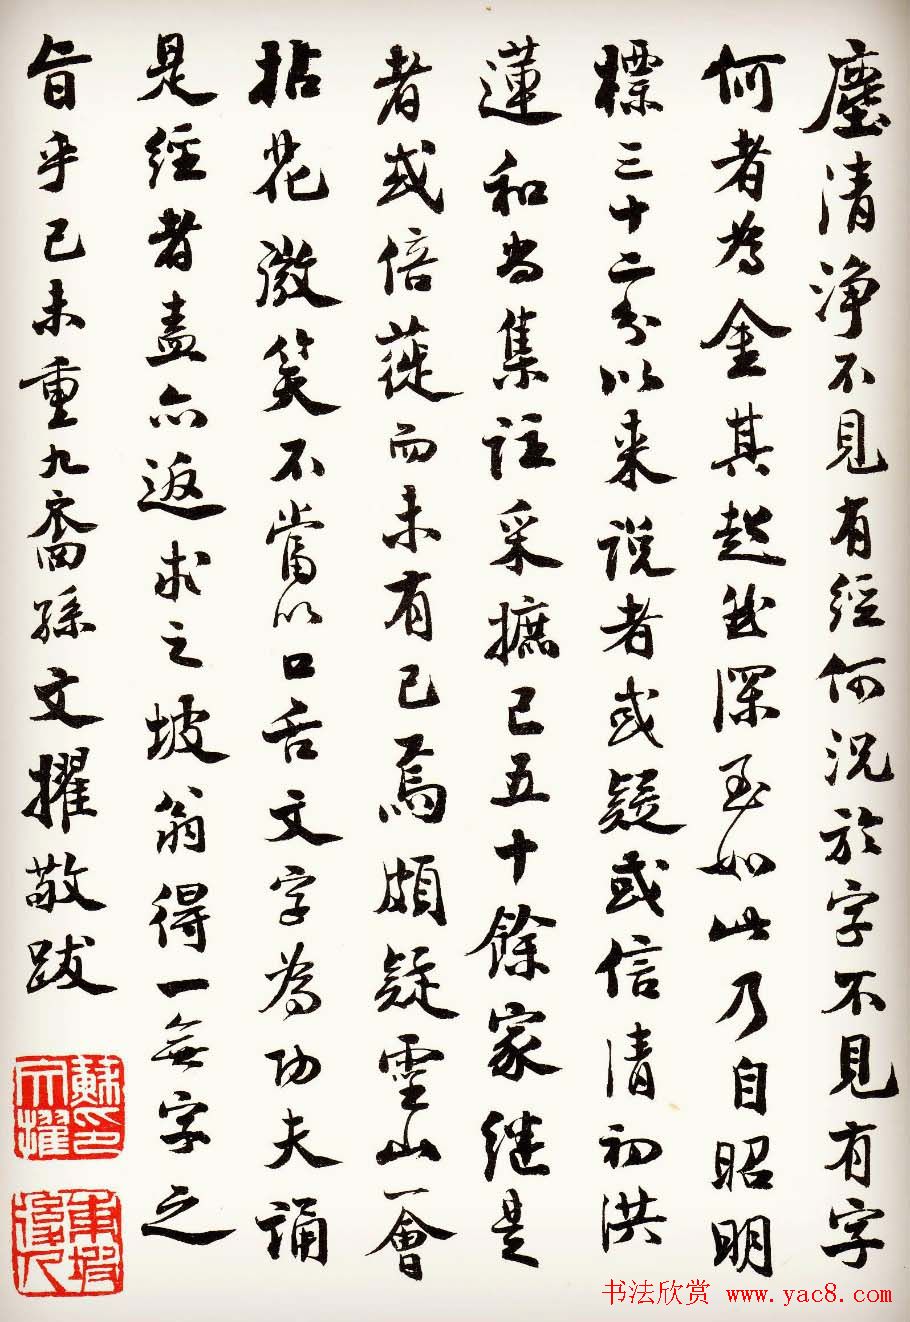 塵清淨不見有經何況於字不見有字
何者為金其起我深至如此乃自昭明
標三十二分以來說者或疑或信清初洪
蓮和尚集註采摭已五十餘家继是
者或倍蓰而未有已焉頗疑靈山一會
拈花微笑不當以口舌文字為功夫誦
是經者盍亦返求之坡翁得一無字之
旨乎己未重九裔孫文擢敬跋
蘇文擢印
東坡裔人
书法欣赏 www.yac8.com